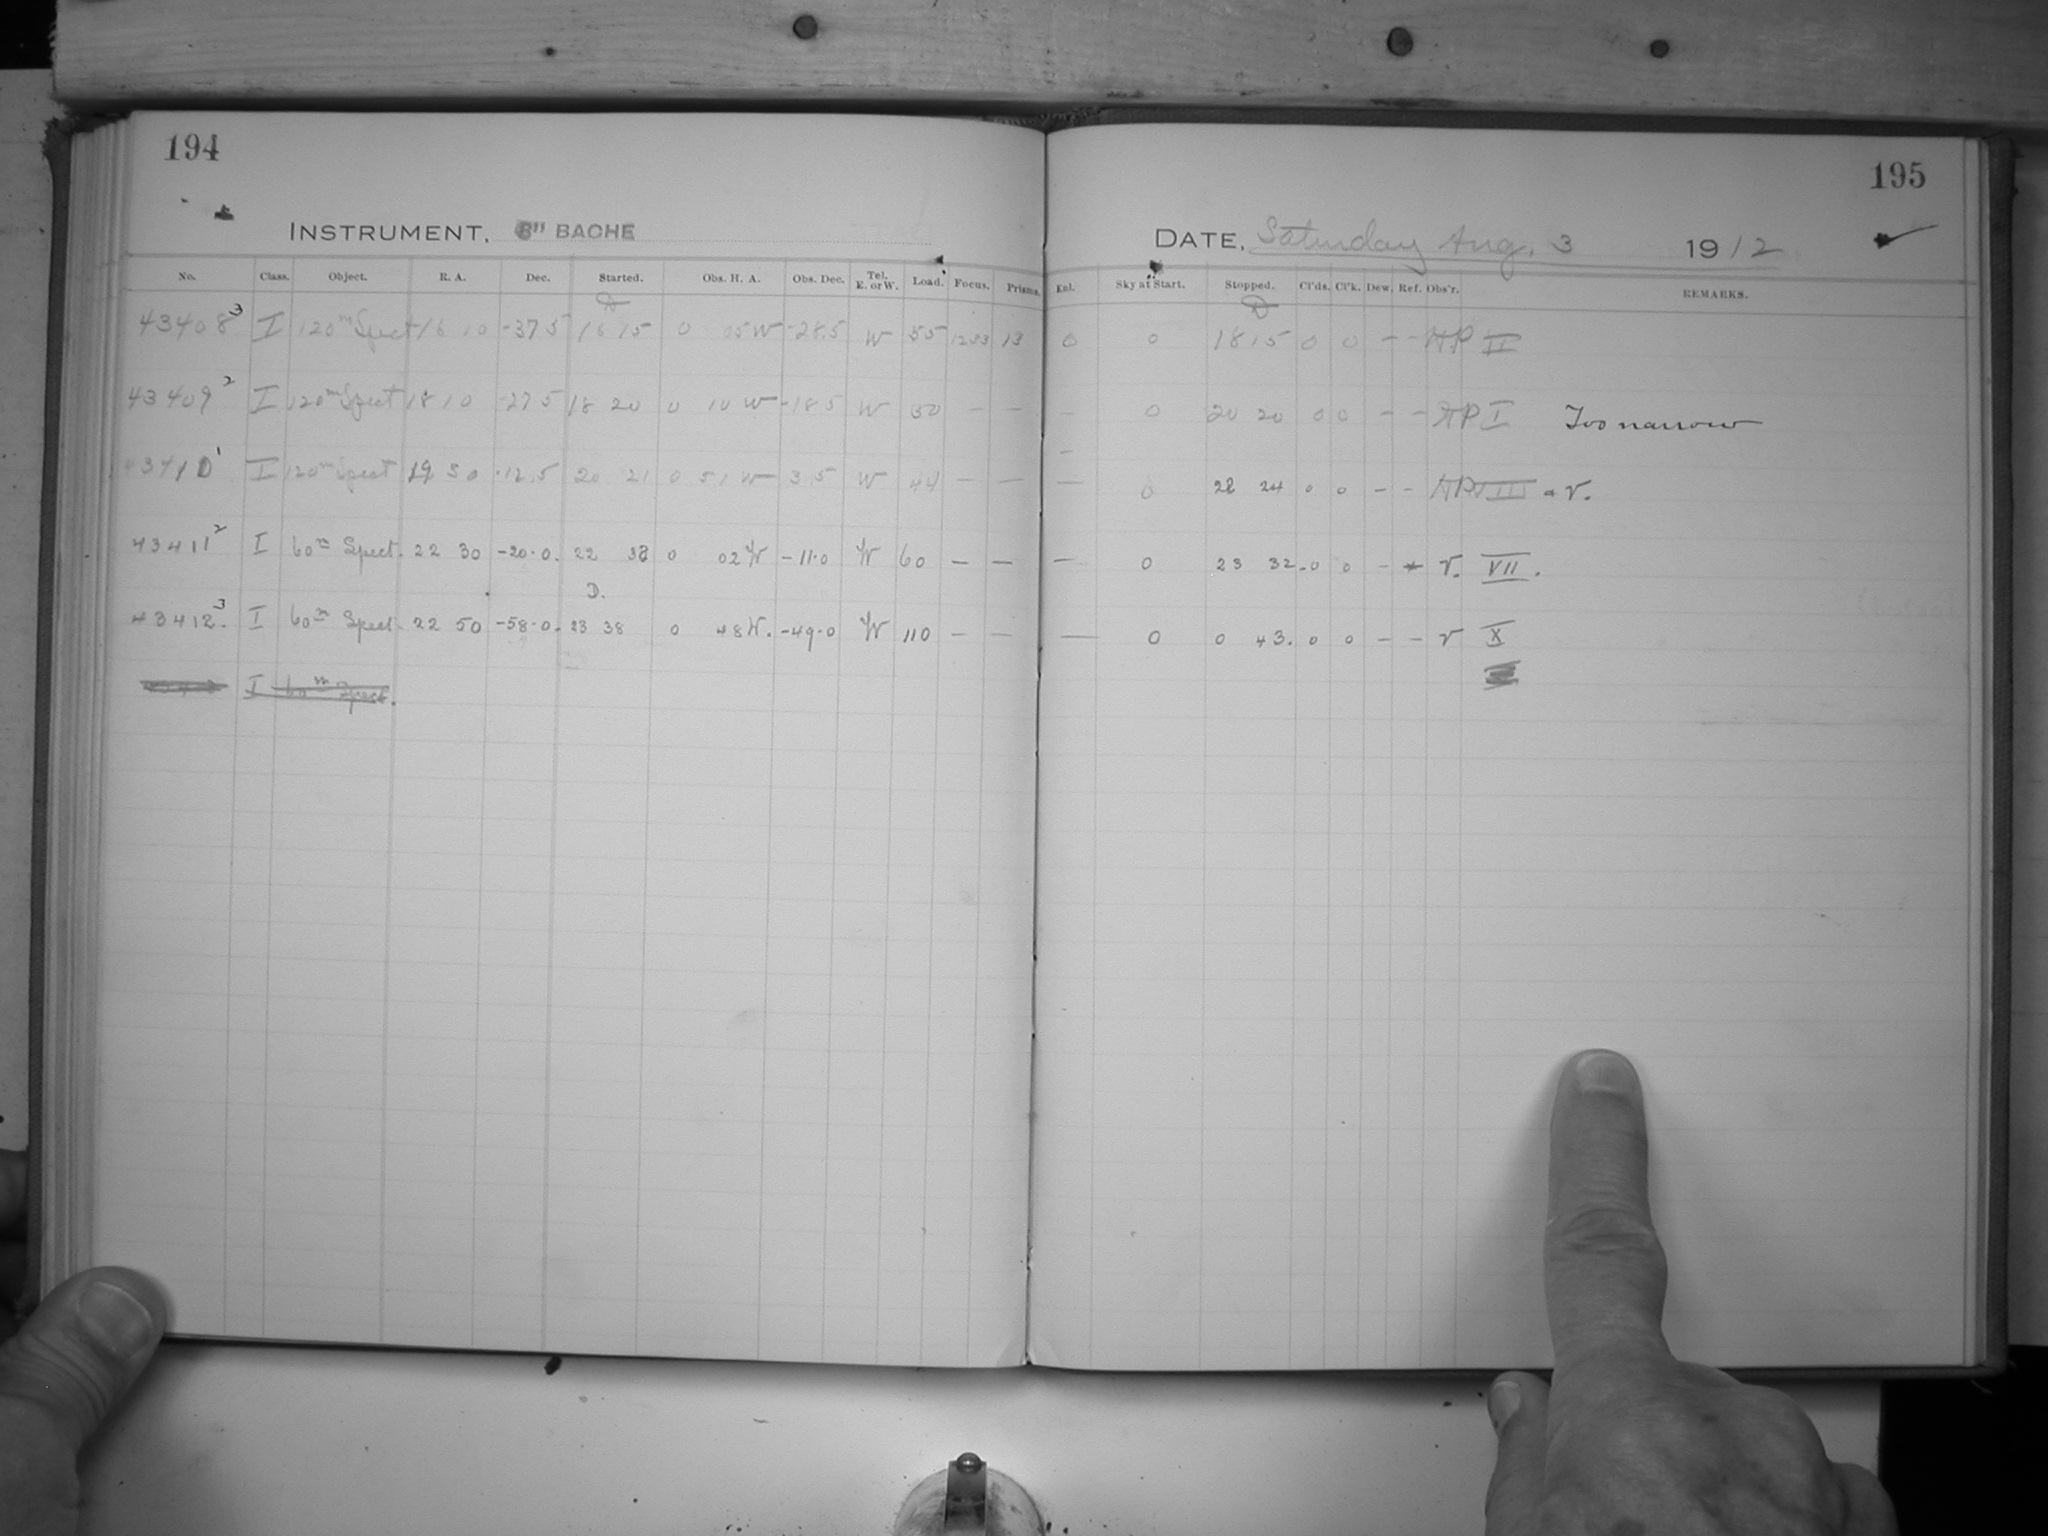 194
195
INSTRUMENT, 8" BACHE
DATE, Saturday Aug. 3 1912
No. Class. Object. R. A. Dec. Started. Obs. H. A. Obs. Dec. Tel. E. or W. Load. Focus. Prisms. Enl. Sky at Start. Stopped. Cl'ds. Cl'k. Dew. Ref. Obs'r. REMARKS.
D D
43408 3 I 120m Spect 16 10 -37.5 16 15 0 05 W -28.5 W 55 1233 13 0 0 18 15 0 0 - - HP II
43409 2 I 120m Spect 18 10 -27 5 18 20 0 10 W -18 5 W 30 - - - 0 20 20 0 0 - - HP I Too narrow
43410 1 I 120m Spect 19 30 -12.5 20 21 0 51 W - 3 5 W 44 - - - 0 22 24 0 0 - - HP VIII & V.
43411 2 I 60m Spect. 22 30 -20.0. 22 32 0 02 W -11.0 W 60 - - - 0 23 32. 0 0 - - V. VII.
D.
43412. 3 I 60m Spect. 22 50 -58.0. 23 38 0 48 W. -49.0 W 110 - - - 0 0 43. 0 0 - - V X
I 60m Spect.